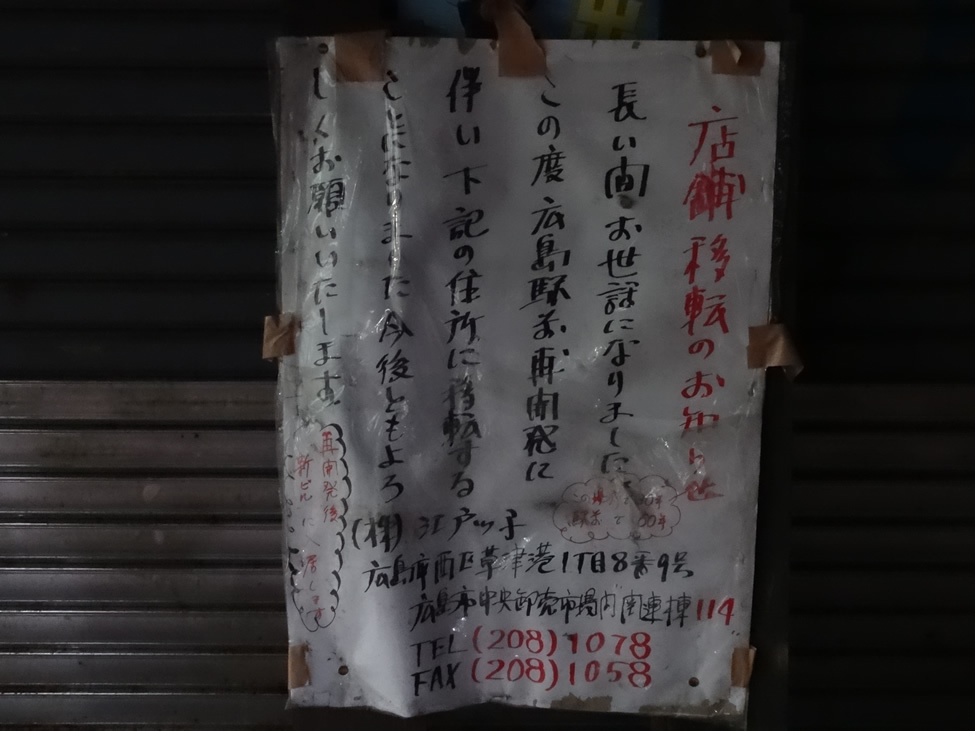 店舗移転のお知らせ
長い間お世話になりました
この度広島駅前再開発に
伴い下記の住所に移転する
ことになりました今後ともよろ
しくお願いいたします
この場所で
駅前で60年
再開発後
新ビルに戻します
(株)江戸ッ子
広島市西区草津港1丁目8番9号
広島市中央卸売市場内関連棟114
TEL(208)1078
FAX(208)1058